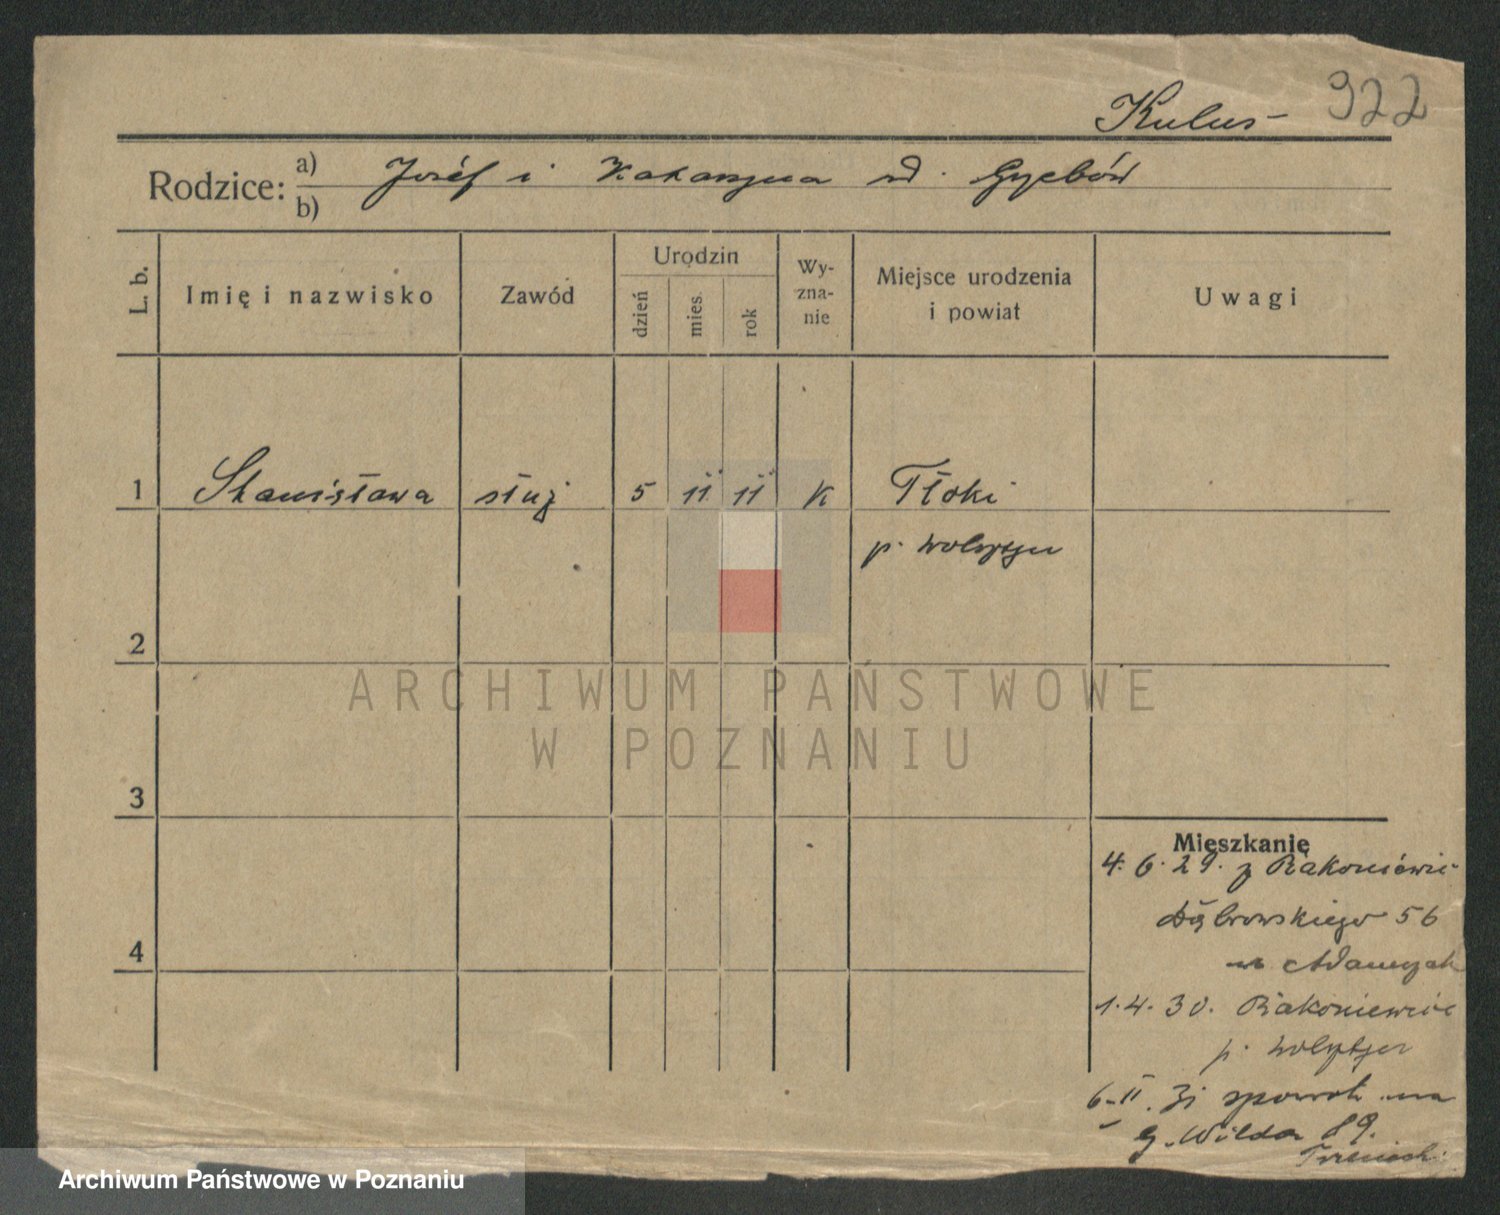 Kulus 922
Rodzice: a) Józef i Katarzyna
b)
L. b. Imię i nazwisko Zawód Urodzin dzień mies. rok Wy-zna-nie Miejsce urodzenia i powiat Uwagi
1 Stanisława służ 5 11 11 K Tłoki
p. Wolsztyn
2
ARCHIWUM PAŃSTWOWE
W POZNANIU
3
Mieszkanie
4. 6. 29. z Rakoniewic
Dąbrowskiego 56
4
1. 4. 30. Rakoniewice
p. Wolsztyn
6. II. 31 spowrot na
G. Wilda 89.
Archiwum Państwowe w Poznaniu